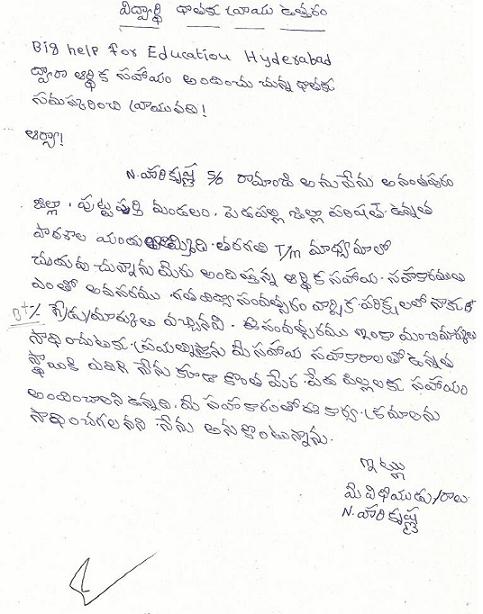 విద్యార్థి దాతకు వ్రాయు ఉత్తరం
Big help for Education Hyderabad
ద్వారా ఆర్థిక సహాయం అందించు చున్న దాతకు
నమస్కరించి వ్రాయునది!
ఆర్యా!
N. హరికృష్ణ S/o రామాంజి అను నేను అనంతపురం
జిల్లా, పుట్టపర్తి మండలం, పెడపల్లి జిల్లా పరిషత్ ఉన్నత
పాఠశాల యందు తరగతి T/m మాధ్యమంలో
చదువు చున్నాను మీరు అందిస్తున్న ఆర్థిక సహాయ సహకారములు
ఎంతో అవసరము గత విద్యా సంవత్సరం వార్షిక పరీక్షలలో నాకు
B+ % గ్రేడు/మార్కులు వచ్చినవి. ఈ సంవత్సరము ఇంకా మంచి మార్కులు
సాధించుటకు ప్రయత్నిస్తాను మీ సహాయ సహకారాలతో ఉన్నత
స్థాయికి ఎదిగి నేను కూడా కొంత మేర పేద పిల్లలకు సహాయం
అందించాలని ఉన్నది. మీ సహకారంతో ఈ కార్యక్రమాలను
సాధించగలనని నేను అనుకొంటున్నాను.
ఇట్లు
మీ విధేయుడు/రాలు
N. హరికృష్ణ